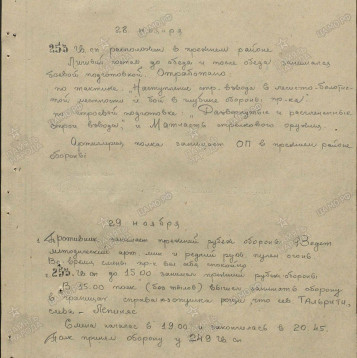 28 ноября
253 сп расположен в прежнем районе
Личный состав до обеда и после обеда занимался
боевой подготовкой. Отработано
по тактике „Наступление стр. взвода в лесисто-болотис-
той местности и бой в глубине обороны пр-ка"
по строевой подготовке „Развернутые и расчлененные
строи взвода" и Матчасть стрелкового оружия.
Артиллерия полка занимает ОП в прежнем районе
обороны
29 ноября
Противник занимал прежний рубеж обороны. Ведет
методический арт. мин и редкий руж. пулем огонь
Во время смены пр-к вел себя спокойно
253 сп до 15.00 занимал прежний рубеж обороны
В 15.00 полк (без) начал занимать оборону
в границах справа
слева -
Смена началась в 19.00 и закончилась в 20.45.
Полк принял оборону у 249 сп